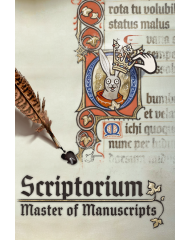 rota tu volubil
status malus
vana
bumbr
et vel
Michi quoqu
nunc per
Scriptorium:
Master of Manuscripts